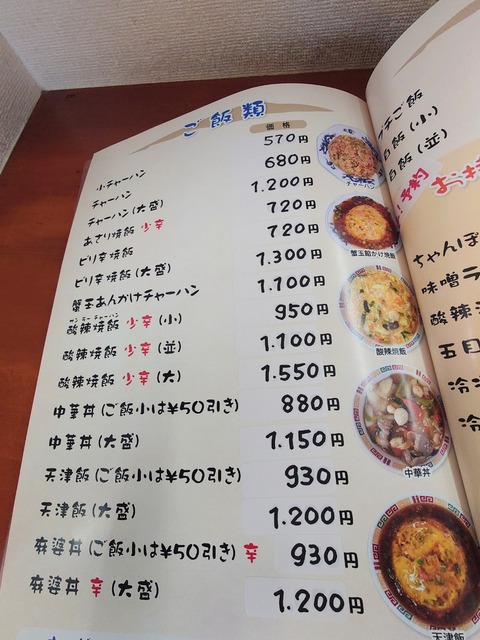 ご飯類
価格
小チャーハン 570円
チャーハン 680円
チャーハン(大盛) 1.200円
あさり焼飯 少辛 720円
ピリ辛焼飯 720円
ピリ辛焼飯(大盛) 1.300円
蟹玉あんかけチャーハン 1.100円
サンラーチャーハン
酸辣焼飯 少辛(小) 950円
酸辣焼飯 少辛(並) 1.100円
酸辣焼飯 少辛(大) 1.550円
中華丼(ご飯小は¥50引き) 880円
中華丼(大盛) 1.150円
天津飯(ご飯小は¥50引き) 930円
天津飯(大盛) 1.200円
麻婆丼(ご飯小は¥50引き)辛 930円
麻婆丼 辛(大盛) 1.200円
チャーハン
蟹玉餡かけ焼飯
酸辣焼飯
中華丼
天津飯
チご飯
白飯(小)
白飯(並)
予約
お
ちゃんぽ
味噌ラ
酸辣
五目
冷
冷